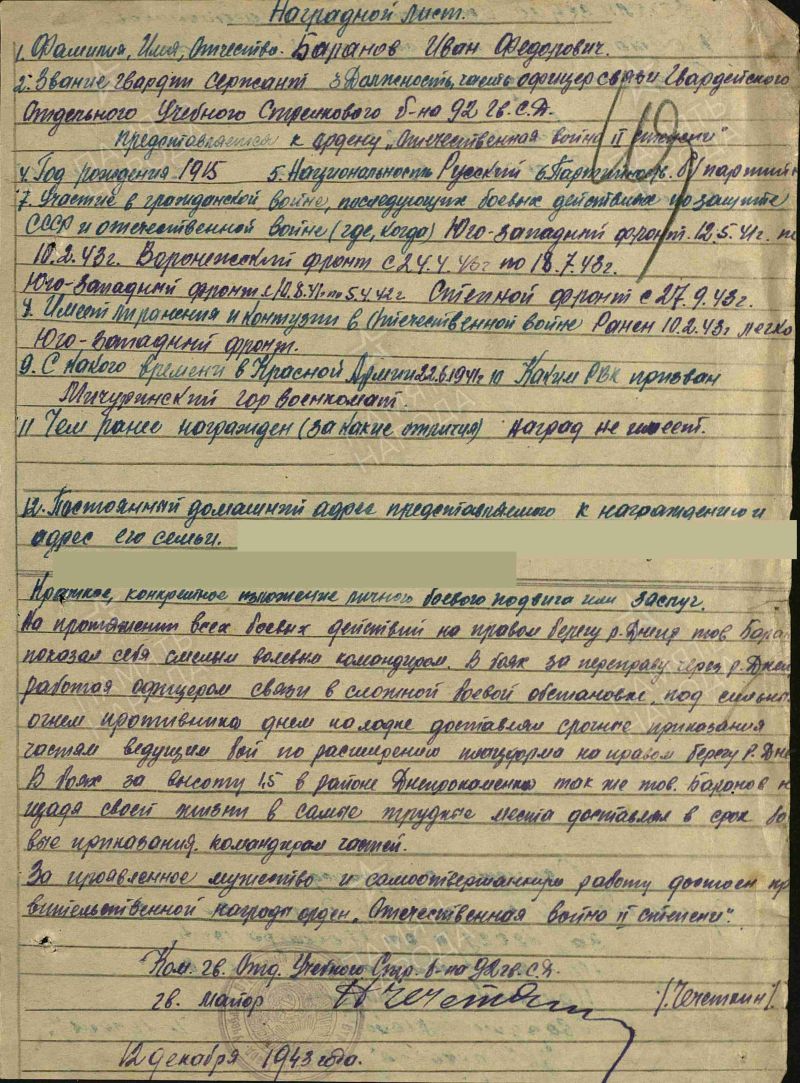 Наградной лист.
1. Фамилия, Имя, Отчество. Баранов Иван Федорович.
2. Звание гвардии сержант 3 Должность, часть офицер связи Гвардейского
Отдельного Учебного Стрелкового б-на 92 гв. С.Д.
представляется к ордену „Отечественная война II степени"
4. Год рождения 1915 5. Национальность Русский 6. Партийность б/партийн
7. Участие в гражданской войне, последующих боевых действиях по защите
СССР и отечественной войне (где, когда) Юго-западный фронт. 12.5.41г. по
10.2.43г. Воронежский фронт с 24.4.43г по 18.7.43г.
Юго-Западный фронт с 10.8.41г по 5.4.42г. Степной фронт с 27.9.43г.
8. Имеет ли ранения и контузии в Отечественной войне Ранен 10.2.43г легко
Юго-Западный фронт.
9. С какого времени в Красной Армии 22.6.1941г 10 Каким РВК призван
Мичуринский горвоенкомат.
11 Чем ранее награжден (за какие отличия) наград не имеет.
12. Постоянный домашний адрес представляемого к награждению и
адрес его семьи.
Краткое, конкретное изложение личного боевого подвига или заслуг.
На протяжении всех боевых действий на правом берегу р. Днепр тов. Баран
показал себя смелым волевым командиром. В боях за переправу через р. Дне
работая офицером связи в сложной боевой обстановке, под сильны
огнем противника днем на лодке доставлял срочные приказания
частям ведущим бой по расширению плацдарма на правом берегу р. Дне
В боях за высоту 1,5 в районе Днепрокаменка так же тов. Баранов н
щадя своей жизни в самые трудные места доставлял в срок бо
вые приказания, командирам частей.
За проявленное мужество и самоотверженную работу достоен пра
вительственной награды орден „Отечественная война II степени".
Ком. гв. Отд. Учебного Стр. б-на 92 гв. С.Д.
гв. майор /Честкин/.
12 декабря 1943 года.